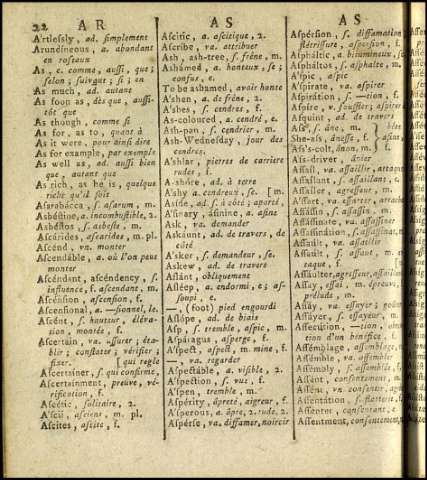 22 AR AS AS
A'rtlessly, ad. simplement
Arundineous, a. abondant
en roseaux
As, c. comme, aussi, que;
selon; suivant; si; en
As much, ad. autant
As soon as, dès que, aussi-
tôt que
As though, comme si
As for, as to, quant à
As it were, pour ainsi dire
As for example, par exemple
As well as, ad. aussi bien
que, autant que
As rich, as he is, quelque
riche qu'il soit
Asarabacca, s. asarum, m.
Asbéstine, a. incombustible, 2.
Asbéstos, s. asbeste, m.
Ascárides, ascarides, m. pl.
Ascénd, vn. monter
Ascendable, a. où l'on peut
monter
Ascéndant, ascéndency, s.
influence, f. ascendant, m.
Ascénsion, ascension, f.
Ascensional, a. —sionnel, le.
Ascént, s. hauteur, éléva-
tion, montée, f.
Ascertain, va. assurer; éta-
blir; constater; vérifier;
fixer. [qui regle
Ascertainer, s. qui confirme,
Ascertainment, preuve, vé-
rification, f.
Ascétic, solitaire, 2.
A'scii, asciens, m. pl.
Ascites, ascite, f.
Ascitic, a. ascitique, 2.
Ascribe, va. attribuer
Ash, ash-tree, s. frêne, m.
Ashámed, a. honteux, se;
confus, e.
To be ashamed, avoir honte
A'shen, a. de frêne, 2.
A'shes, s. cendres, f.
As-coloured, a. cendré, e.
Ash-pan, s. cendrier, m.
Ash-Wednesday, jour des
cendres.
A'shlar, pierres de carriere
rudes, f.
A-shóre, ad. à terre
A'shy a. cendreux, se. [m.
Aside, ad. à côté; aparté,
A'sinary, ásinine, a. asine
Ask, va. demander
Askáunt, ad. de travers, de
côté
A'sker, s. demandeur, se.
Askew, ad. de travers
Aslánt, obliquement
Asléep, a. endormi, e; as-
soupi, e.
—, (foot) pied engourdi
Aslópe, ad. de biais
Asp, s. tremble, aspic, m.
Aspáragus, asperge, f.
A'spect, aspéct, m. mine, f.
—, va. regarder
Aspéctable, a. visible, 2.
Aspéction, s. vue, f.
A'spen, tremble, m.
Aspérity, âpreté, aigreur, f.
A'sperous, a. âpre, 2. rude, 2.
Aspérse, va. diffamer, noircir
Aspérsion, s. diffamation
flétrissure, aspersion, f.
Aspháltic, a. bitumineux,
Aspháltos, s. asphalte, m.
A'spic, aspic
A'spirate, va. aspirer
Aspirátion, s. —tion, f.
Aspire, v. souffler; aspirer
Asquint, ad. de travers
A'ss, s. âne, m.
She-ass, ânesse, f.
Ass's-colt, ânon, m.
As's-driver, ânier
Assáil, va. assaillir, attaquer
Assailant, s. assaillant, e.
Assáiler, agresseur, m.
Assart, va. essarter, arracher
Assássin, s. assassin, m.
Assássinate, va. assassiner
Assassination, assassinat,
Assault, va. assaillir
Assault, s. assaut, m.
taque, f.
Assáulter, agresseur, assaillant
Assay, essai, m. épreuve,
prélude, m.
Assáy, va. essayer; goûter
Assáyer, s. essayeur, m.
Assecution, —tion, obten-
tion d'un bénéfice, f.
Assémblage, assemblage, m.
Assémble, va. assembler
Assémbly, s. assemblée, f.
Assént, consentement, m.
Assént, vn. consentir,
Assentátion, s. flatterie, f.
Assenter, consentant, e.
Assentment, consentement,